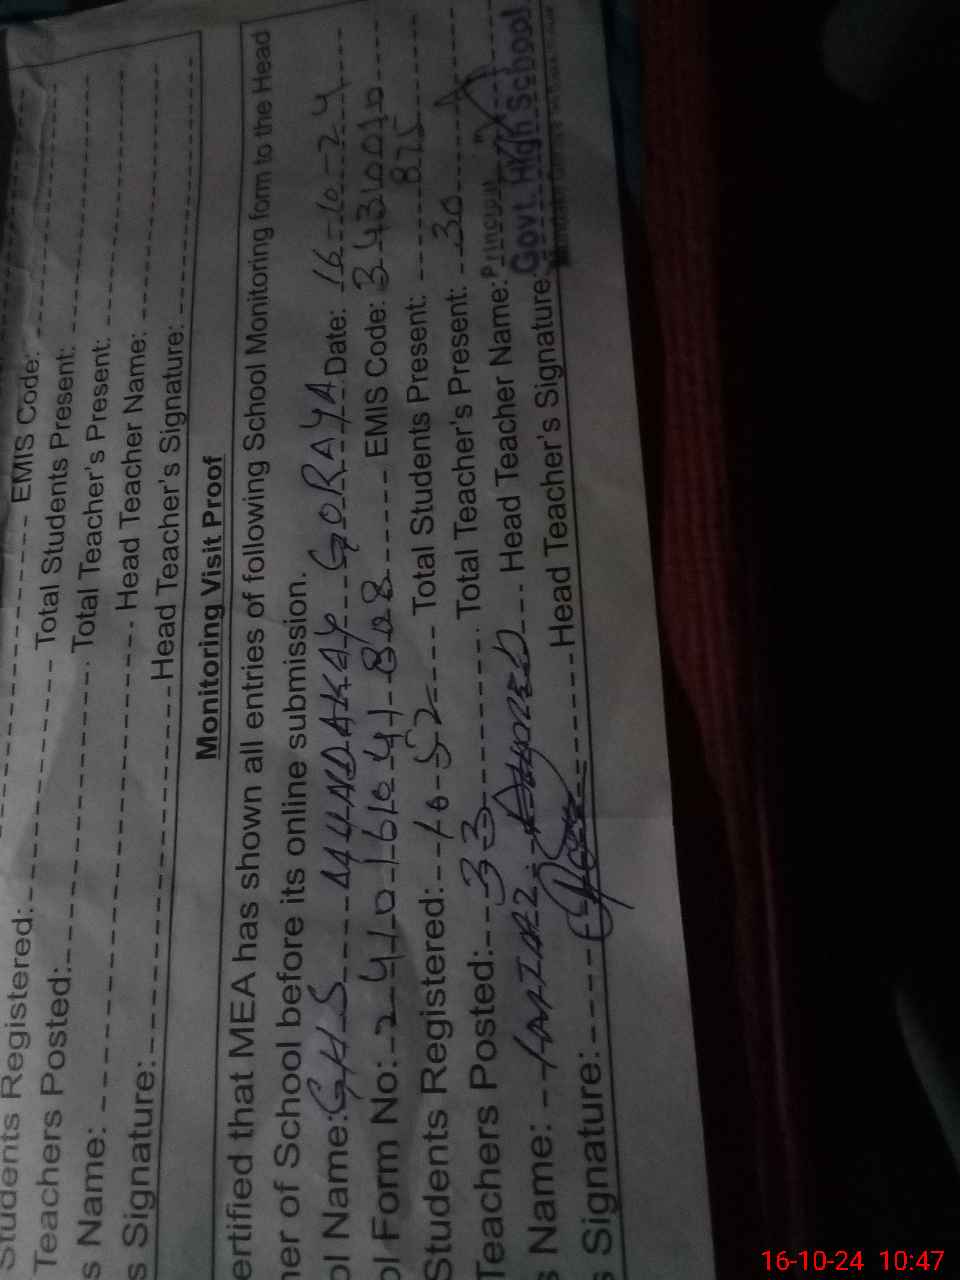 Students Registered: EMIS Code:
Teachers Posted: Total Students Present:
s Name: Total Teacher's Present:
s Signature: Head Teacher Name:
Head Teacher's Signature:
Monitoring Visit Proof
ertified that MEA has shown all entries of following School Monitoring form to the Head
her of School before its online submission.
ol Name: GHS GORAYA Date: 16-10-24
ol Form No: EMIS Code:
Students Registered: 1052 Total Students Present: 875
Teachers Posted: 33 Total Teacher's Present: 30
s Name: Head Teacher Name: Principal
s Signature: Head Teacher's Signature: Govt. High School
16-10-24 10:47